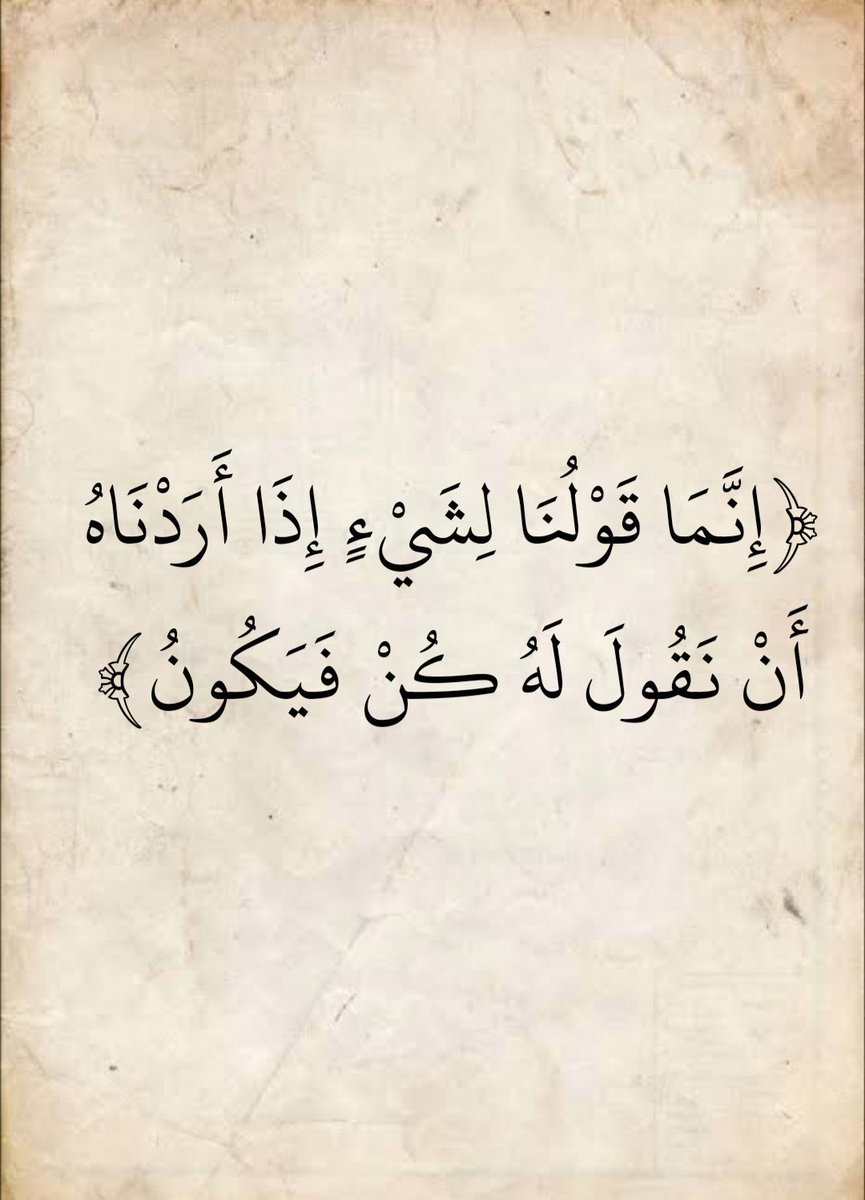 ﴿إِنَّمَا قَوْلُنَا لِشَيْءٍ إِذَا أَرَدْنَاهُ
أَنْ نَقُولَ لَهُ كُنْ فَيَكُونُ﴾